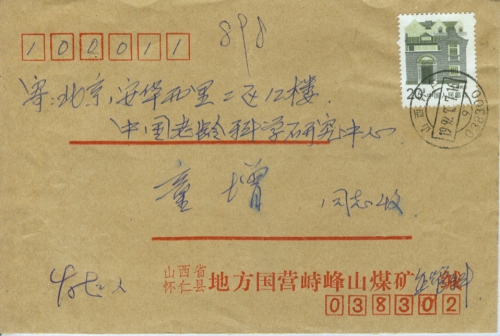 100011
898
20
中国人民邮政
寄:北京,安华西里二区12楼.
中国老龄科学研究中心
童增 同志收
山西省
怀仁县 地方国营峙峰山煤矿
038302